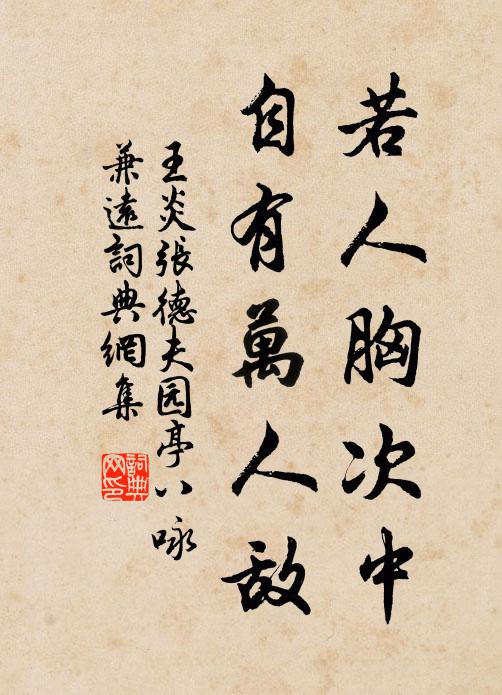 若人胸次中
自有萬人敵
王炎張德夫园亭八咏
兼遠詞典網集
詞典
网印